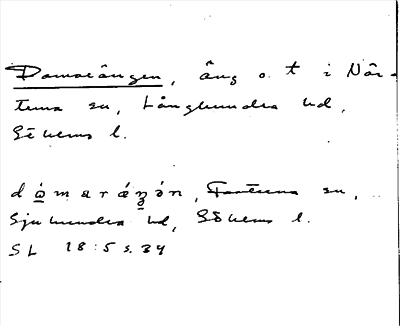 Domarängen, äng o. t i När-
tuna sn, Långhundra hd,
Sthlms l.
dómaráŋən, Fasterna sn,
Sjuhundra hd, Sthlms l.
SL 18:5 s. 34